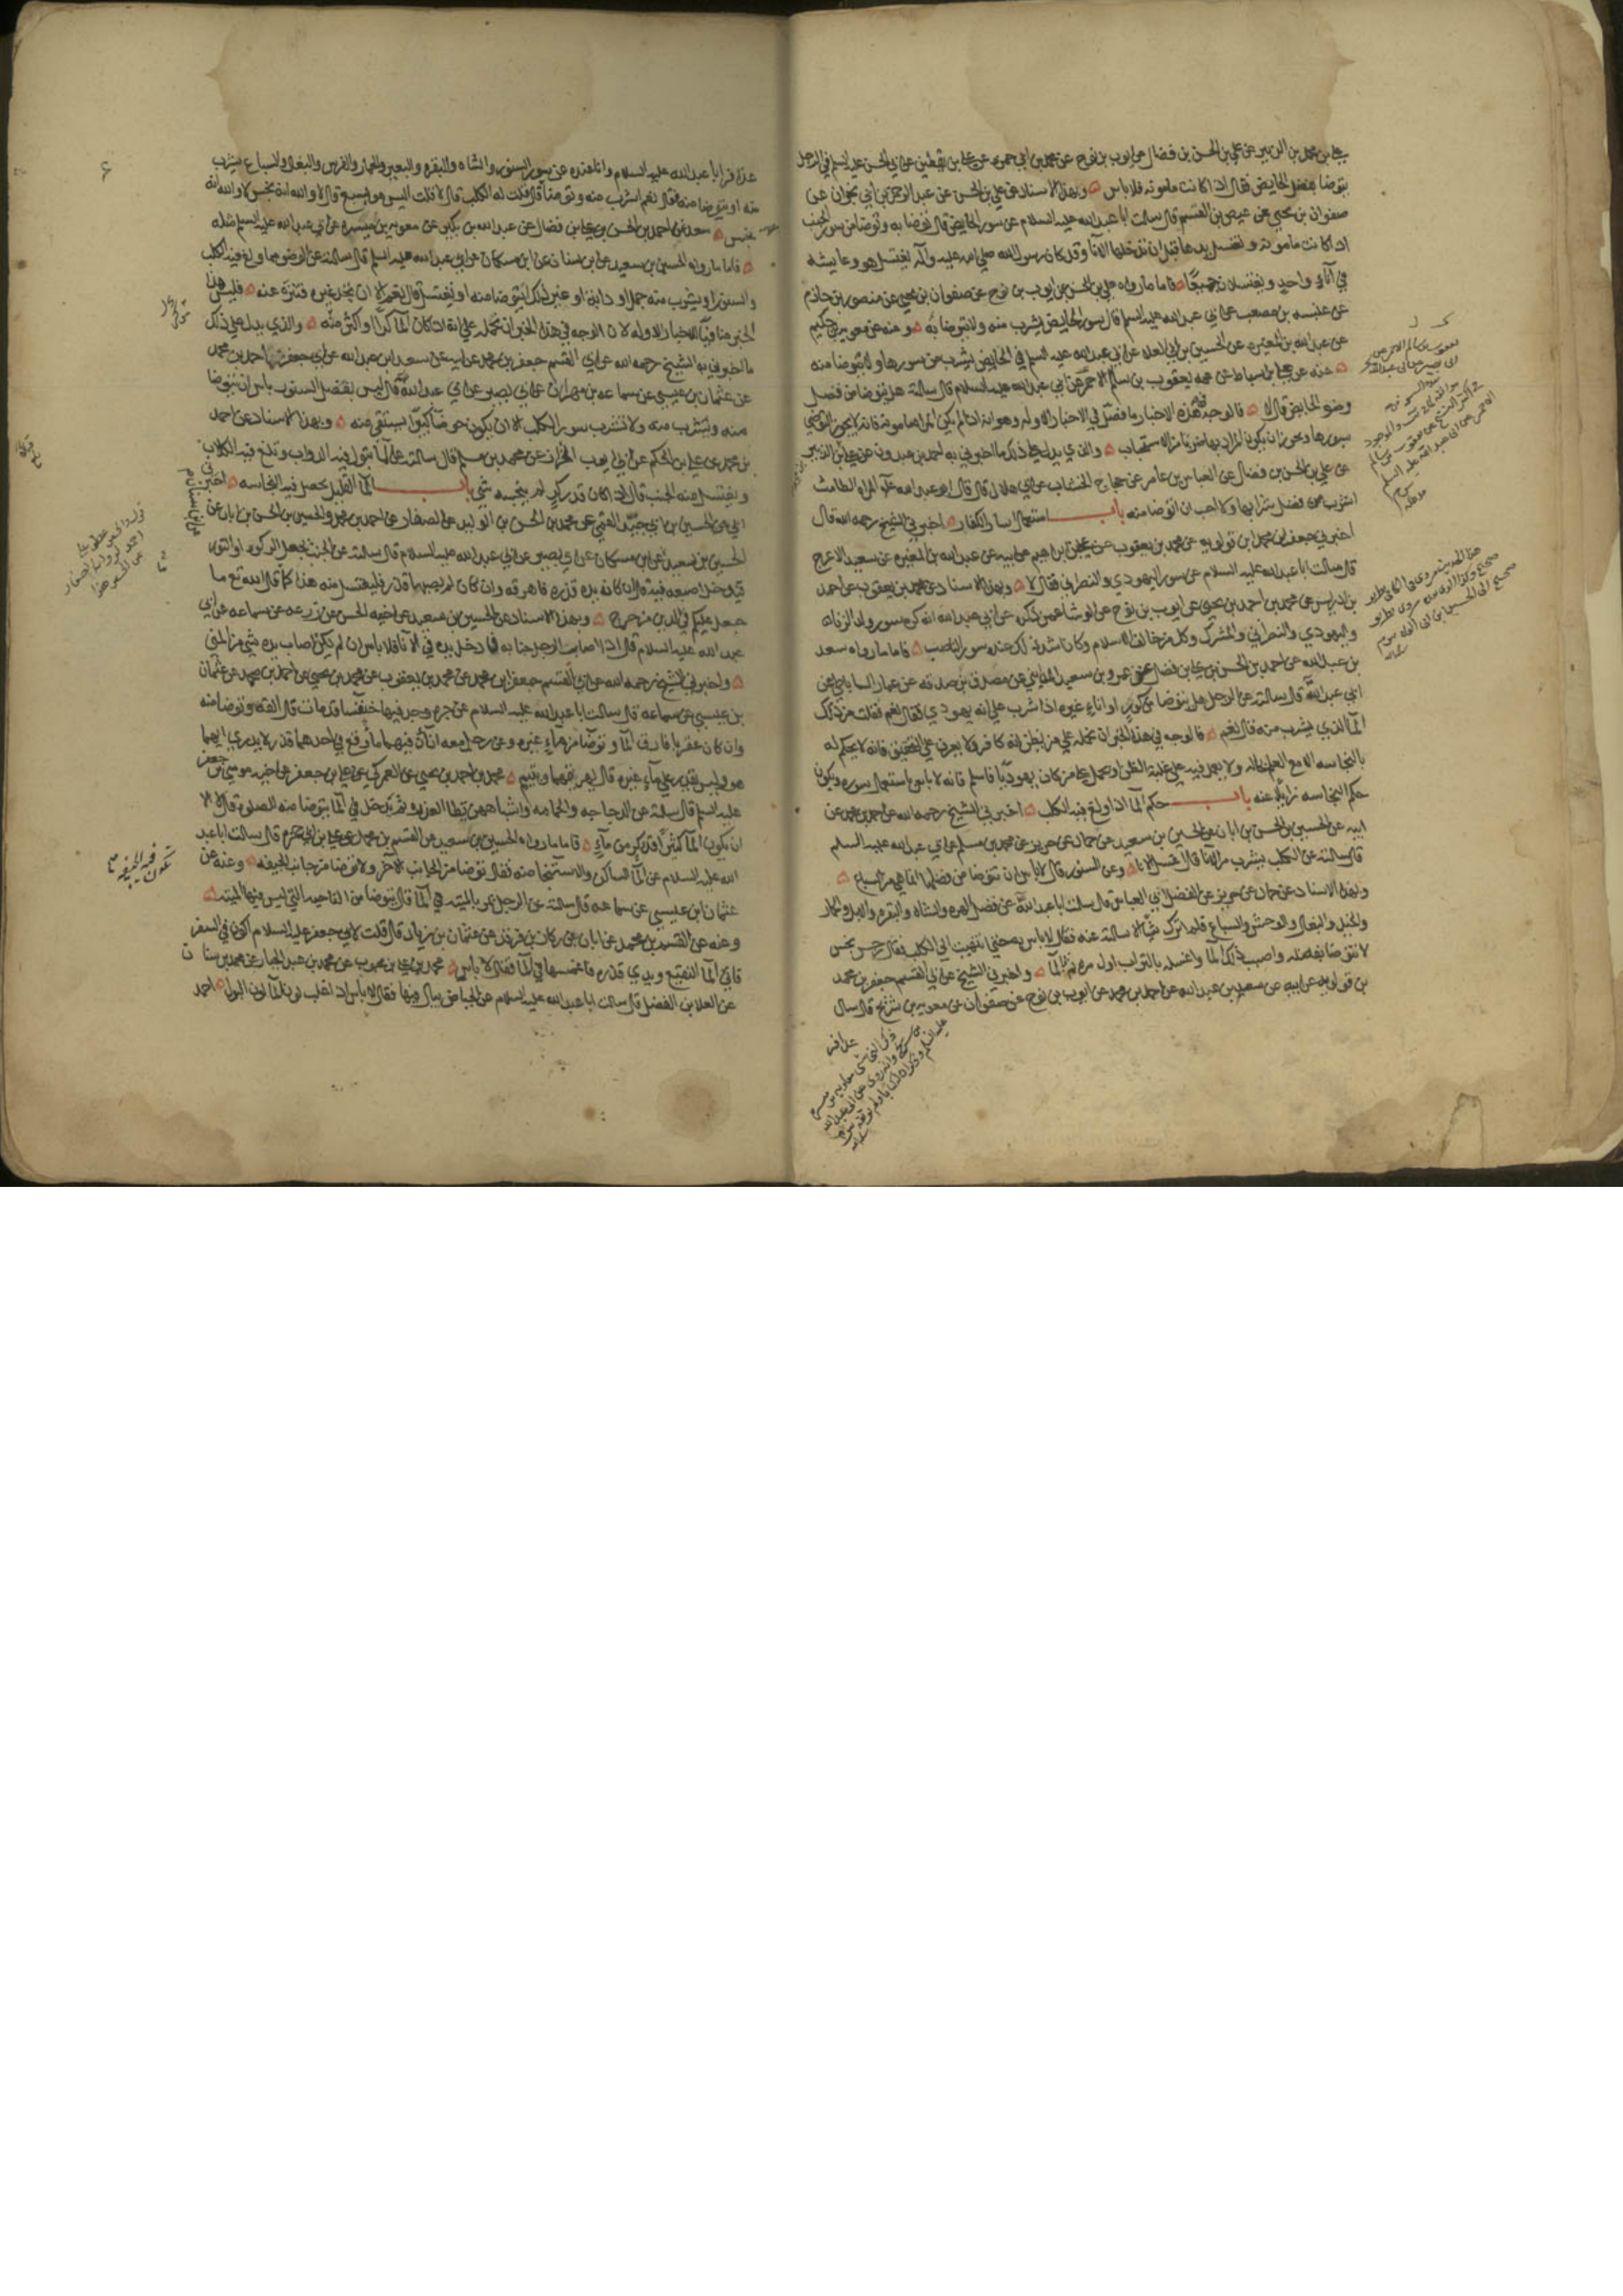 علي بن محمد بن الزبير عن علي بن الحسن بن فضال عن ايوب بن نوح عن محمد بن ابي حمزة عن علي بن يقطين عن ابي الحسن عليه السلم في الرجل
يتوضا بفضل الحايض فقال اذا كانت مامونه فلا باس وبهذا الاسناد عن علي بن الحسن عن عبد الرحمن بن ابي نجران عن
صفوان بن يحيى عن عيص بن القسم قال سالت ابا عبد الله عليه السلام عن سور الحايض قال توضا به وتوضا من سور الجنب
اذا كانت مامونة وتغسل يدها قبل ان تدخلها الانا وقد كان رسول الله صلى الله عليه وآله يغتسل هو وعايشه
في آناء واحد ويغتسلان جميعًا فاما ما رواه علي بن الحسن عن ايوب بن نوح عن صفوان بن يحيى عن منصور بن حازم
عن عنبسه بن مصعب عن ابي عبد الله عليه السلم قال سور الحايض يشرب منه ولا يتوضا به وعنه عن معويه بن حكيم
عن عبد الله بن المغيره عن الحسين بن ابي العلا عن ابي عبد الله عليه السلم في الحايض يشرب من سورها ولا يتوضا منه
عنه عن علي بن اسباط عن عمه يعقوب بن سالم الاحمر عن ابي عبد الله عليه السلام قال سالته هل يتوضا من فضل
وضو الحايض قال لا فالوجه في هذه الاخبار ما فصل في الاخبار الاوله وهو انه اذا لم يكن المراة مامونة فانه لا يجوز التوضي
بسورها ويجوز ان يكون المراد بها ضربًا من الاستحباب والذي يدل على ذلك ما اخبرني به احمد بن عبدون عن علي بن الزبير
عن علي بن الحسن بن فضال عن العباس بن عامر عن حجاج الخشاب عن ابي هلال قال قال ابو عبد الله عليه المراة الطامث
اشرب من فضل شرابها ولا احب ان اتوضا منه باب استعمال اسار الكفار اخبرني الشيخ رحمه الله قال
اخبرني جعفر بن محمد ابن قولويه عن محمد بن يعقوب عن علي بن ابراهيم عن ابيه عن عبد الله بن المغيره عن سعيد الاعرج
قال سالت ابا عبد الله عليه السلام عن سور اليهودي والنصراني فقال لا وبهذا الاسناد عن محمد بن يعقوب عن احمد
بن ادريس عن محمد بن احمد بن يحيى عن ايوب بن نوح عن الوشا عمن ذكره عن ابي عبد الله انه كره سور ولد الزنا
واليهودي والنصراني والمشرك وكل من خالف الاسلام وكان اشد ذلك عنده سور الناصب فاما ما رواه سعد
بن عبد الله عن احمد بن الحسن بن علي بن فضال عن عمرو بن سعيد المدايني عن مصدق بن صدقه عن عمار الساباطي عن
ابي عبد الله قال سالته عن الرجل هل يتوضا من كوز او اناء غيره اذا شرب على انه يهودي فقال نعم فقلت من ذلك
الما الذي يشرب منه قال نعم فالوجه في هذا الخبر ان نحمله على من يظن انه كافر ولا يعرف على التحقيق فانه لا يحكم له
بالنجاسه الا مع العلم بحاله ولا يعمل فيه على غلبة الظن او نحمل على من كان يهوديا فاسلم فانه لا باس باستعمال سوره ويكون
حكم النجاسه زايلا عنه باب حكم الما اذا ولغ فيه الكلب اخبرني الشيخ رحمه الله عن احمد بن محمد عن
ابيه عن الحسين بن الحسن بن ابان عن الحسين بن سعيد عن حماد عن حريز عن محمد بن مسلم عن ابي عبد الله عليه السلم
قال سالته عن الكلب يشرب من الانا قال اغسل الانا وعن السنور قال لا باس ان تتوضا من فضلها انما هي من السباع
وبهذا الاسناد عن حماد عن حريز عن الفضل ابي العباس قال سالت ابا عبد الله عن فضل الهره والشاه والبقره والابل والحمار
والخيل والبغال والوحش والسباع فلم اترك شيًا الا سالته عنه فقال لا باس به حتى انتهيت الى الكلب فقال رجس نجس
لا تتوضا بفضله واصبب ذلك الما واغسله بالتراب اول مره ثم بالما واخبرني الشيخ عن ابي القسم جعفر بن محمد
بن قولويه عن ابيه عن سعد بن عبد الله عن احمد بن محمد عن ايوب بن نوح عن صفوان عن معويه بن شريح قال سال
عذافر ابا عبد الله عليه السلام وانا عنده عن سور السنور والشاه والبقره والبعير والحمار والفرس والبغال والسباع يشرب
منه او يتوضا منه فقال نعم اشرب منه وتوضا قال قلت له الكلب قال لا قلت اليس هو بسبع قال لا والله انه نجس لا والله انه
نجس سعد عن احمد بن الحسن بن علي بن فضال عن عبد الله بن بكير عن معويه بن ميسره عن ابي عبد الله عليه السلم مثله
فاما ما رواه الحسين بن سعيد عن ابن سنان عن ابن مسكان عن ابي عبد الله عليه السلم قال سالته عن الوضو مما ولغ فيه الكلب
والسنور او يشرب منه جمل او دابة او غير ذلك ايتوضا منه او يغتسل قال نعم الا ان تجد غيره فتنزه عنه فليس هذا
الخبر منافيًا للاخبار الاوله لان الوجه في هذا الخبر ان نحمله على انه اذا كان الما كرًا او اكثر منه والذي يدل على ذلك
ما اخبرني به الشيخ رحمه الله عن ابي القسم جعفر بن محمد عن ابيه عن سعد بن عبد الله عن ابي جعفر احمد بن محمد
عن عثمان بن عيسى عن سماعه بن مهران عن ابي بصير عن ابي عبد الله قال ليس بفضل السنور باس ان يتوضا
منه ويشرب منه ولا تشرب سور الكلب الا ان يكون حوضًا كبيرًا يستقى منه وبهذا الاسناد عن احمد
بن محمد عن علي بن الحكم عن ابي ايوب الخزاز عن محمد بن مسلم قال سالته عن الما تبول فيه الدواب وتلغ فيه الكلاب
ويغتسل منه الجنب قال اذا كان قدر كر لم ينجسه شي باب الما القليل يحصل فيه النجاسه اخبرني
ابن ابي جيد القمي عن محمد بن الحسن بن الوليد عن الصفار عن احمد بن محمد والحسين بن الحسن بن ابان عن
الحسين بن سعيد عن ابن مسكان عن ابي بصير عن ابي عبد الله عليه السلام قال سالته عن الجنب يجعل الركوه او التور
فيدخل اصبعه فيه قال ان كانت يده قذره فاهرقه وان كان لم يصبها قذر فليغتسل منه هذا مما قال الله تع ما
جعل عليكم في الدين من حرج وبهذا الاسناد عن الحسين بن سعيد عن اخيه الحسن عن زرعه عن سماعه عن ابي
عبد الله عليه السلام قال اذا اصابت الرجل جنابه فادخل يده في الانا فلا باس ان لم يكن اصاب يده شي من المنى
واخبرني الشيخ رحمه الله عن ابي القسم جعفر بن محمد عن محمد بن يعقوب عن محمد بن يحيى عن احمد بن محمد عن عثمان
بن عيسى عن سماعه قال سالت ابا عبد الله عليه السلام عن جره وجد فيها خنفسا قد مات قال القه وتوضا منه
وان كان عقربا فارق الما وتوضا من ماء غيره وعن رجل معه اناآن فيهما ما وقع في احدهما قذر لا يدري ايهما
هو وليس يقدر على ماء غيره قال يهريقهما ويتيمم محمد بن احمد بن يحيى عن العمركي عن علي بن جعفر عن اخيه موسى بن جعفر
عليه السلم قال سالته عن الدجاجه والحمامه واشباههن تطا العذره ثم تدخل في الما يتوضا منه للصلوة قال لا الا
ان يكون الما كثيرًا قدر كر من ماء فاما ما رواه الحسين بن سعيد عن القسم بن محمد عن علي بن ابي حمزه قال سالت ابا عبد
الله عليه السلام عن الما الساكن والاستنجا منه فقال توضا من الجانب الآخر ولا توضا من جانب الجيفه وعنه عن
عثمان ابن عيسى عن سماعه قال سالته عن الرجل يمر بالميته في الما قال يتوضا من الناحيه التي ليس فيها الميته
وعنه عن القسم بن محمد عن ابان عن زكار بن فرقد عن عثمان بن زياد قال قلت لابي جعفر عليه السلام اكون في السفر
فاتي الما النقيع ويدي قذره فاغمسها في الما فقال لا باس محمد بن علي بن محبوب عن محمد بن عبد الجبار عن محمد بن سنان
عن العلا بن الفضل قال سالت ابا عبد الله عليه السلام عن الحياض يبال فيها فقال لا باس اذا غلب لون الما لون البول احمد